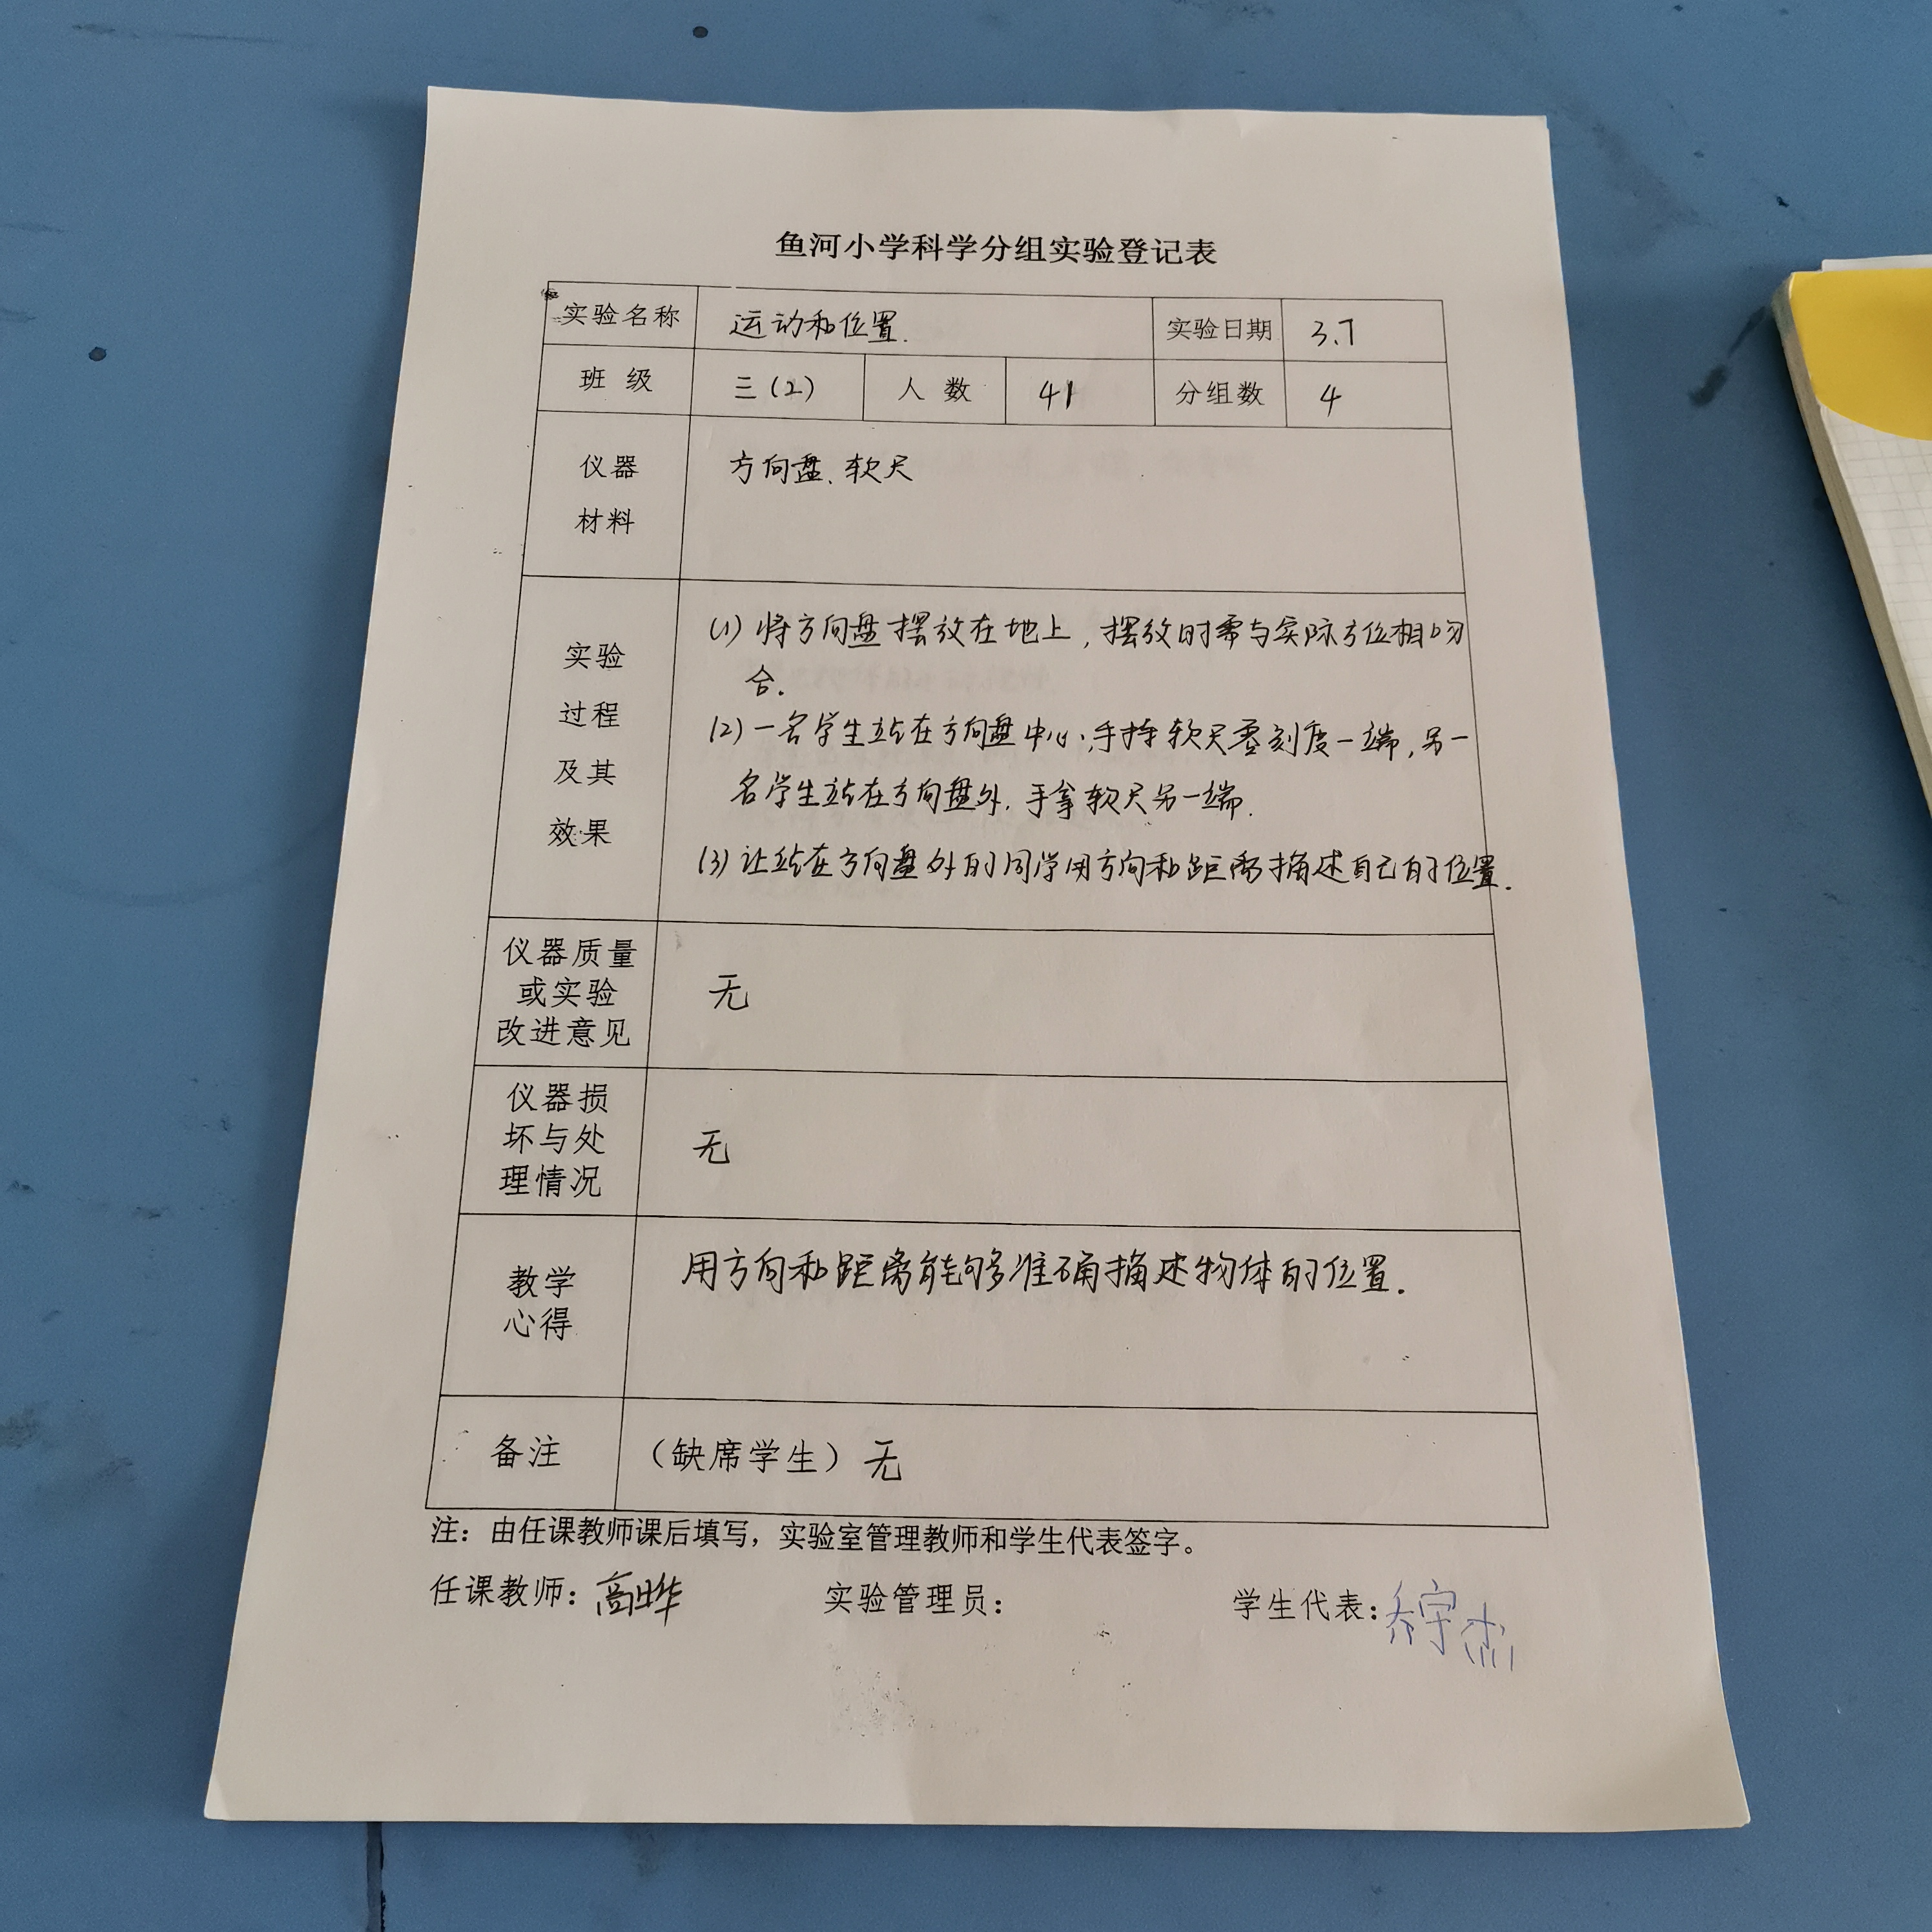 鱼河小学科学分组实验登记表
实验名称 运动和位置. 实验日期 3.7
班 级 三(2) 人 数 41 分组数 4
仪器
材料
方向盘、软尺
实验
过程
及其
效果
(1) 将方向盘摆放在地上,摆放时需与实际方位相吻
合.
(2) 一名学生站在方向盘中心,手持软尺零刻度一端,另一
名学生站在方向盘外,手拿软尺另一端.
(3) 让站在方向盘外的同学用方向和距离描述自己的位置.
仪器质量
或实验
改进意见
无
仪器损
坏与处
理情况
无
教学
心得
用方向和距离能够准确描述物体的位置.
备注 （缺席学生）无
注：由任课教师课后填写，实验室管理教师和学生代表签字。
任课教师：高晔 实验管理员： 学生代表：乔宇杰